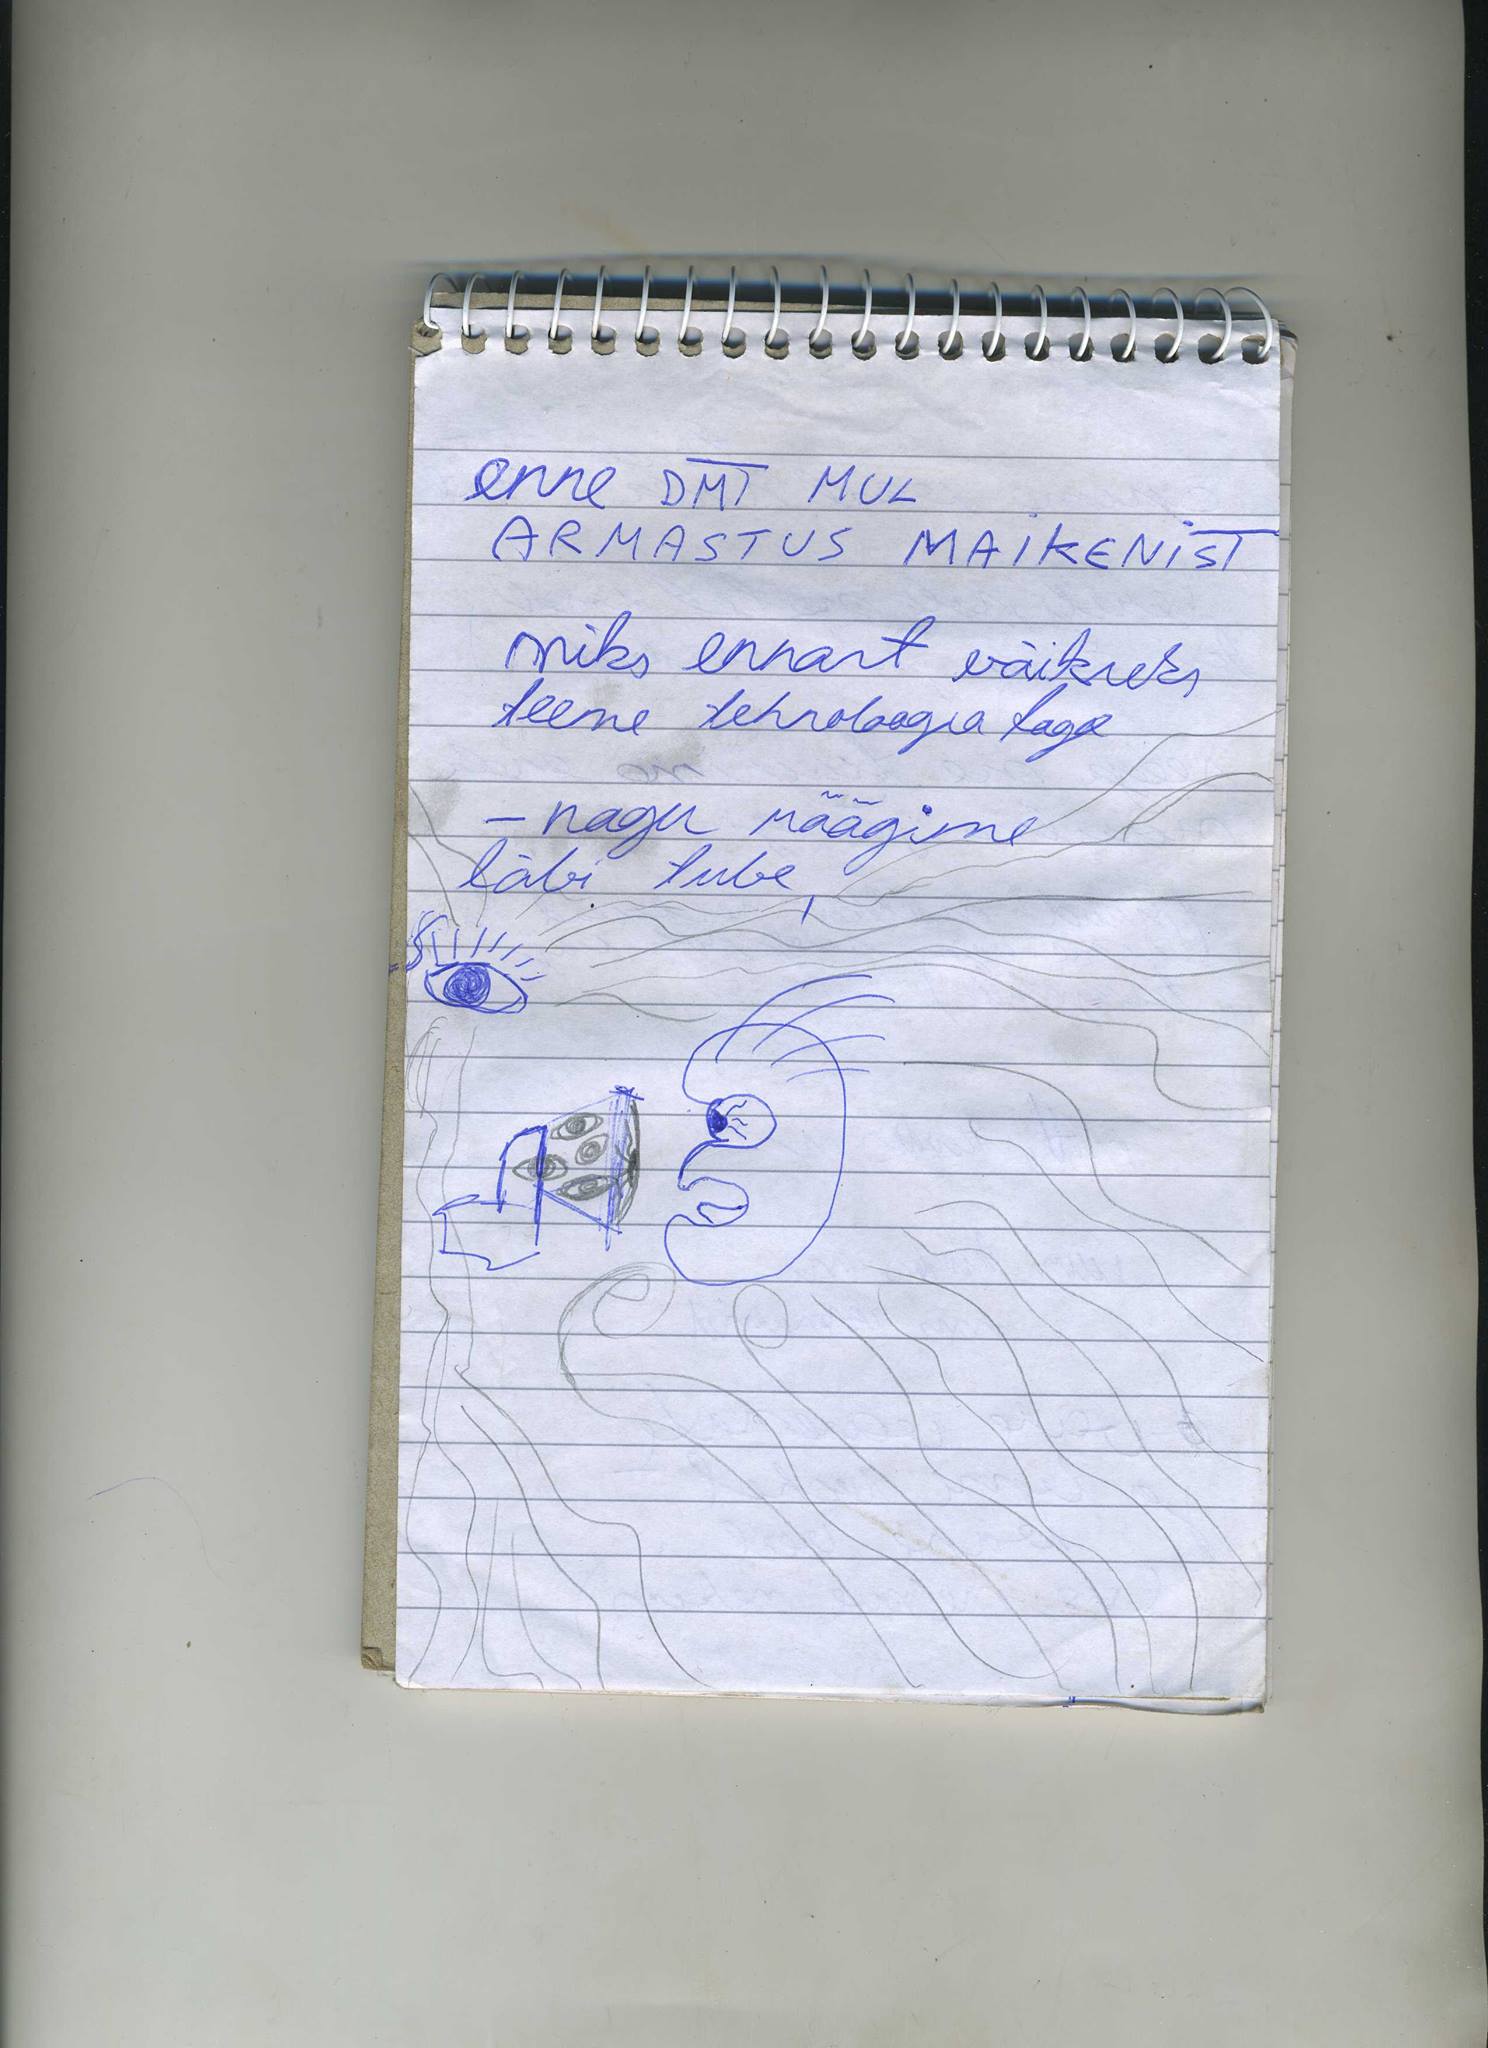 enne DMT MUL
ARMASTUS MAIKENIST
miks ennast väikseks
teeme tehnoloogia taga
– nagu räägime
läbi tube